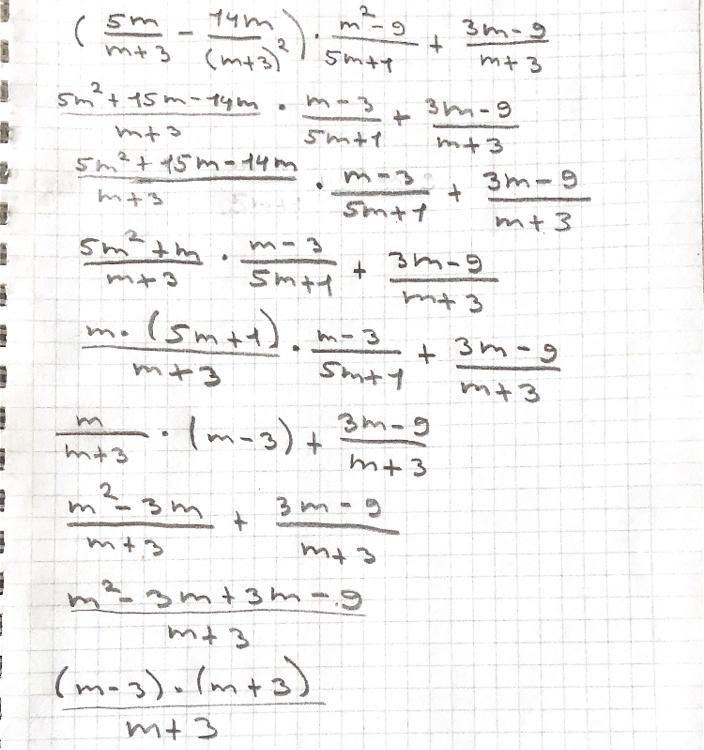 (5m/(m+3) - 14m/(m+3)²) · (m²-9)/(5m+1) + (3m-9)/(m+3)
(5m²+15m-14m)/(m+3) · (m-3)/(5m+1) + (3m-9)/(m+3)
(5m²+15m-14m)/(m+3) · (m-3)/(5m+1) + (3m-9)/(m+3)
(5m²+m)/(m+3) · (m-3)/(5m+1) + (3m-9)/(m+3)
(m·(5m+1))/(m+3) · (m-3)/(5m+1) + (3m-9)/(m+3)
m/(m+3) · (m-3) + (3m-9)/(m+3)
(m²-3m)/(m+3) + (3m-9)/(m+3)
(m²-3m+3m-9)/(m+3)
((m-3)·(m+3))/(m+3)